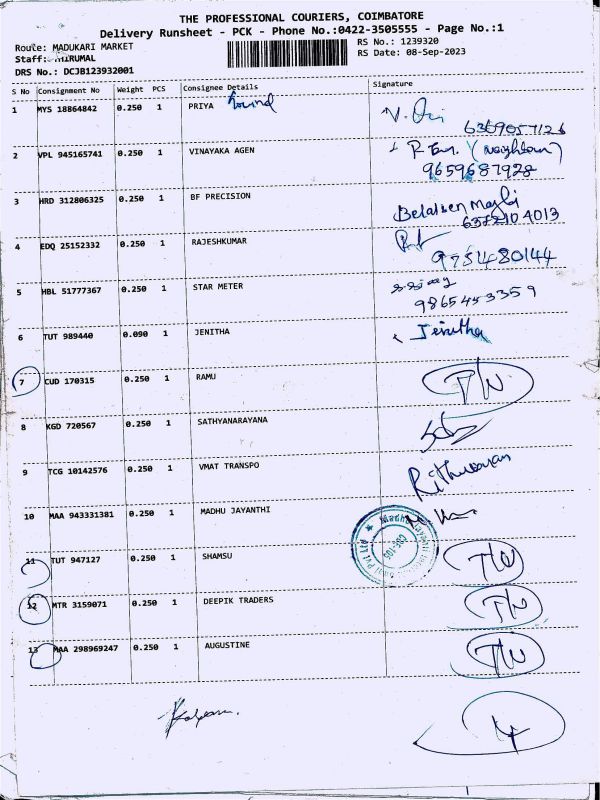 THE PROFESSIONAL COURIERS, COIMBATORE
Delivery Runsheet - PCK - Phone No.:0422-3505555 - Page No.:1
Route: MADUKARI MARKET
RS No.: 1239320
Staff: NIRUMAL
RS Date: 08-Sep-2023
DRS No.: DCJB123932001
S No Consignment No Weight PCS Consignee Details Signature
1 MYS 18864842 0.250 1 PRIYA
6369057126
2 VPL 945165741 0.250 1 VINAYAKA AGEN
(neighbour)
9659687928
3 HRD 312806325 0.250 1 BF PRECISION
6372104013
4 EDQ 25152332 0.250 1 RAJESHKUMAR
9751480144
5 HBL 51777367 0.250 1 STAR METER
9865453359
6 TUT 989440 0.090 1 JENITHA Jenitha
7 CUD 170315 0.250 1 RAMU T/N
8 KGD 720567 0.250 1 SATHYANARAYANA
9 TCG 10142576 0.250 1 VMAT TRANSPO
10 MAA 943331381 0.250 1 MADHU JAYANTHI
11 TUT 947127 0.250 1 SHAMSU T/N
12 MTR 3159071 0.250 1 DEEPIK TRADERS T/N
13 MAA 298969247 0.250 1 AUGUSTINE T/N